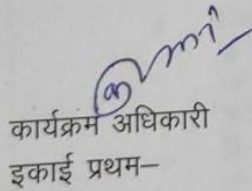 कार्यक्रम अधिकारी
इकाई प्रथम–